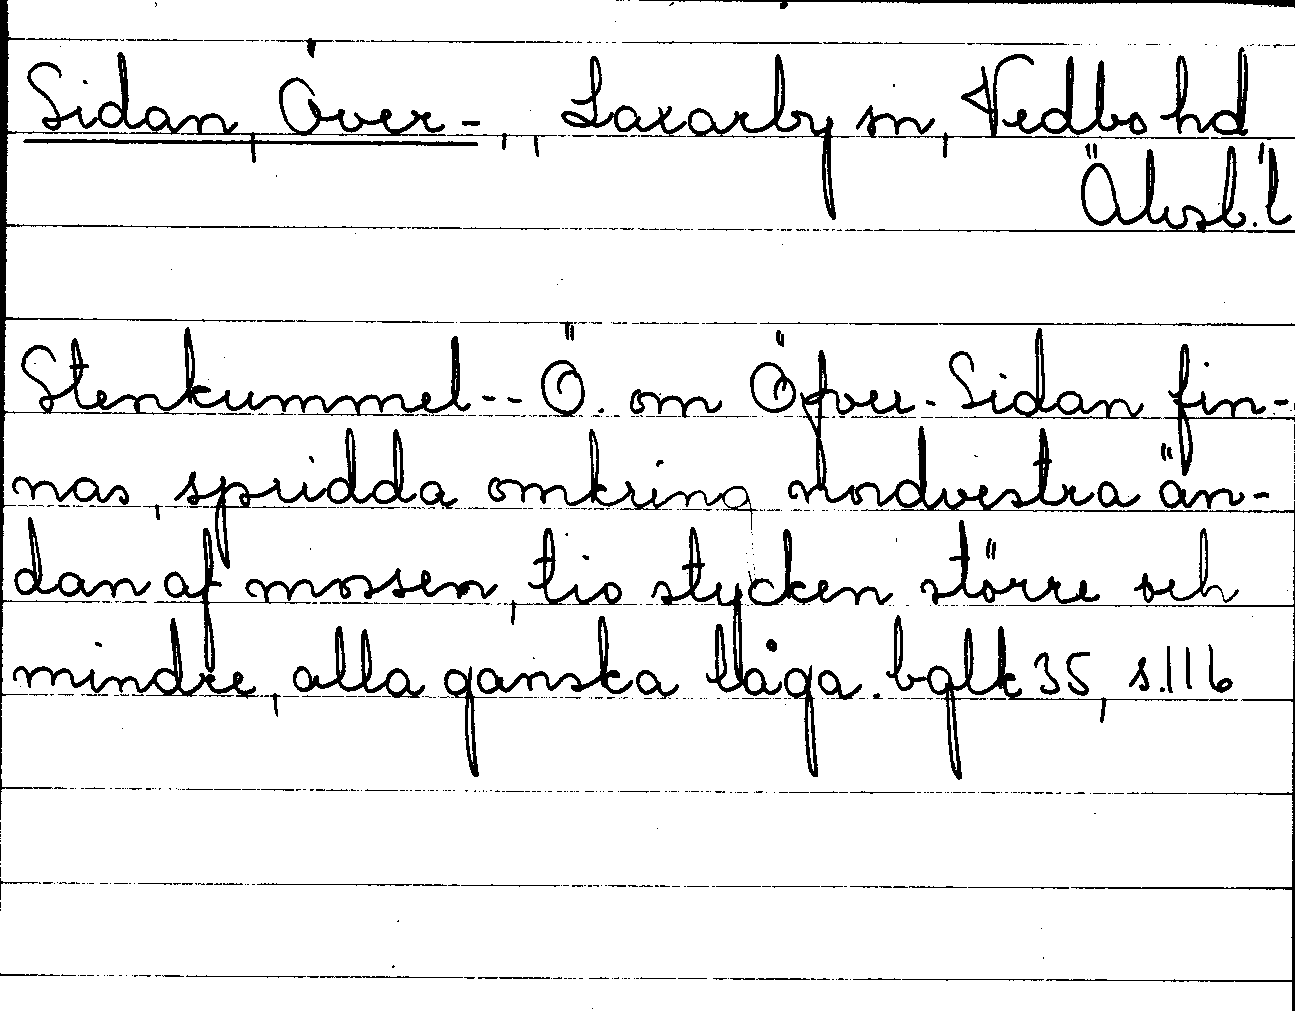 Sidan, Över-, , Laxarby sn, Vedbo hd
Älvsb. l
Stenkummel-- Ö. om Öfver-Sidan fin-
nas, spridda omkring nordvestra än-
dan af mossen, tio stycken större och
mindre, alla ganska låga. bglk 35, s.116